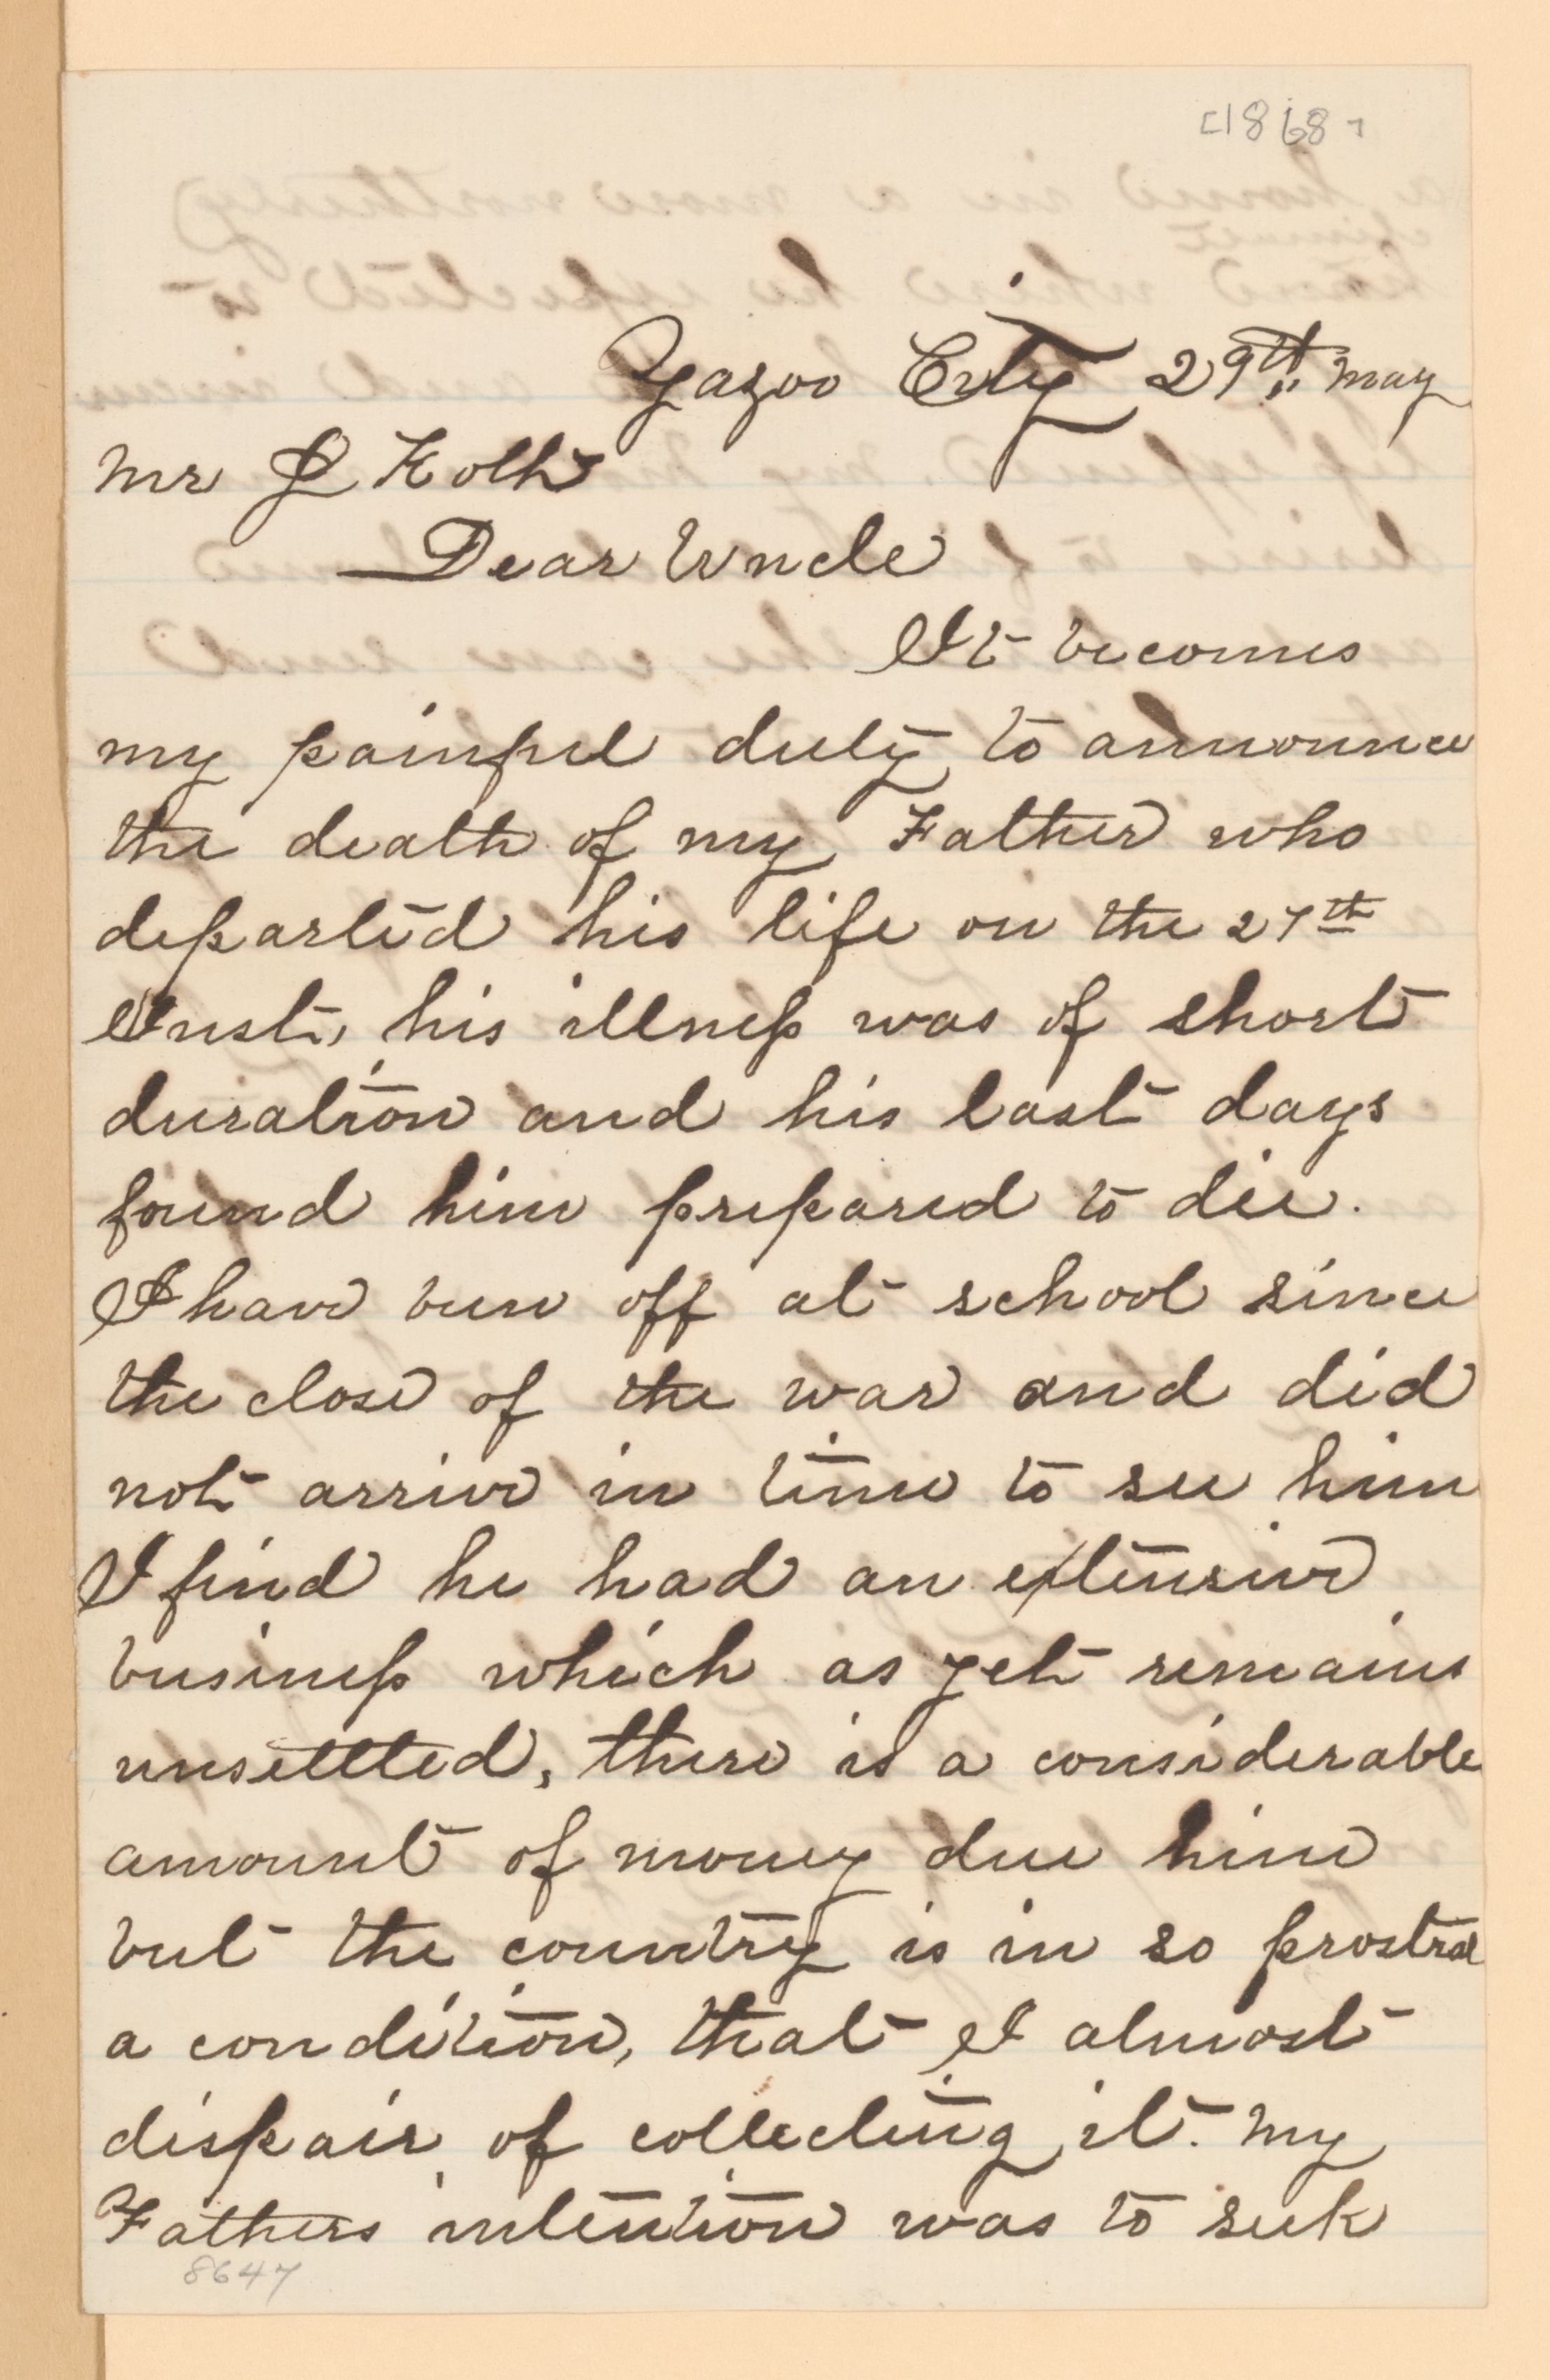 [1868]
Yazoo City 29th May
Mr J Holt
Dear Uncle
It becomes
my painful duty to announce
the death of my Father who
departed his life on the 27th
Inst, his illness was of short
duration and his last days
found him prepared to die.
I have been off at school since
the close of the war and did
not arrive in time to see him
I find he had an extensive
business which as yet remains
unsettled, there is a considerable
amount of money due him
but the country is in so prostrate
a condition, that I almost
dispair of collecting it. My
Fathers intention was to seek
8647